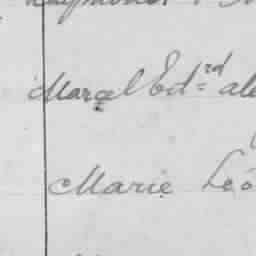 Marcel Ed.rd
Marie Léo